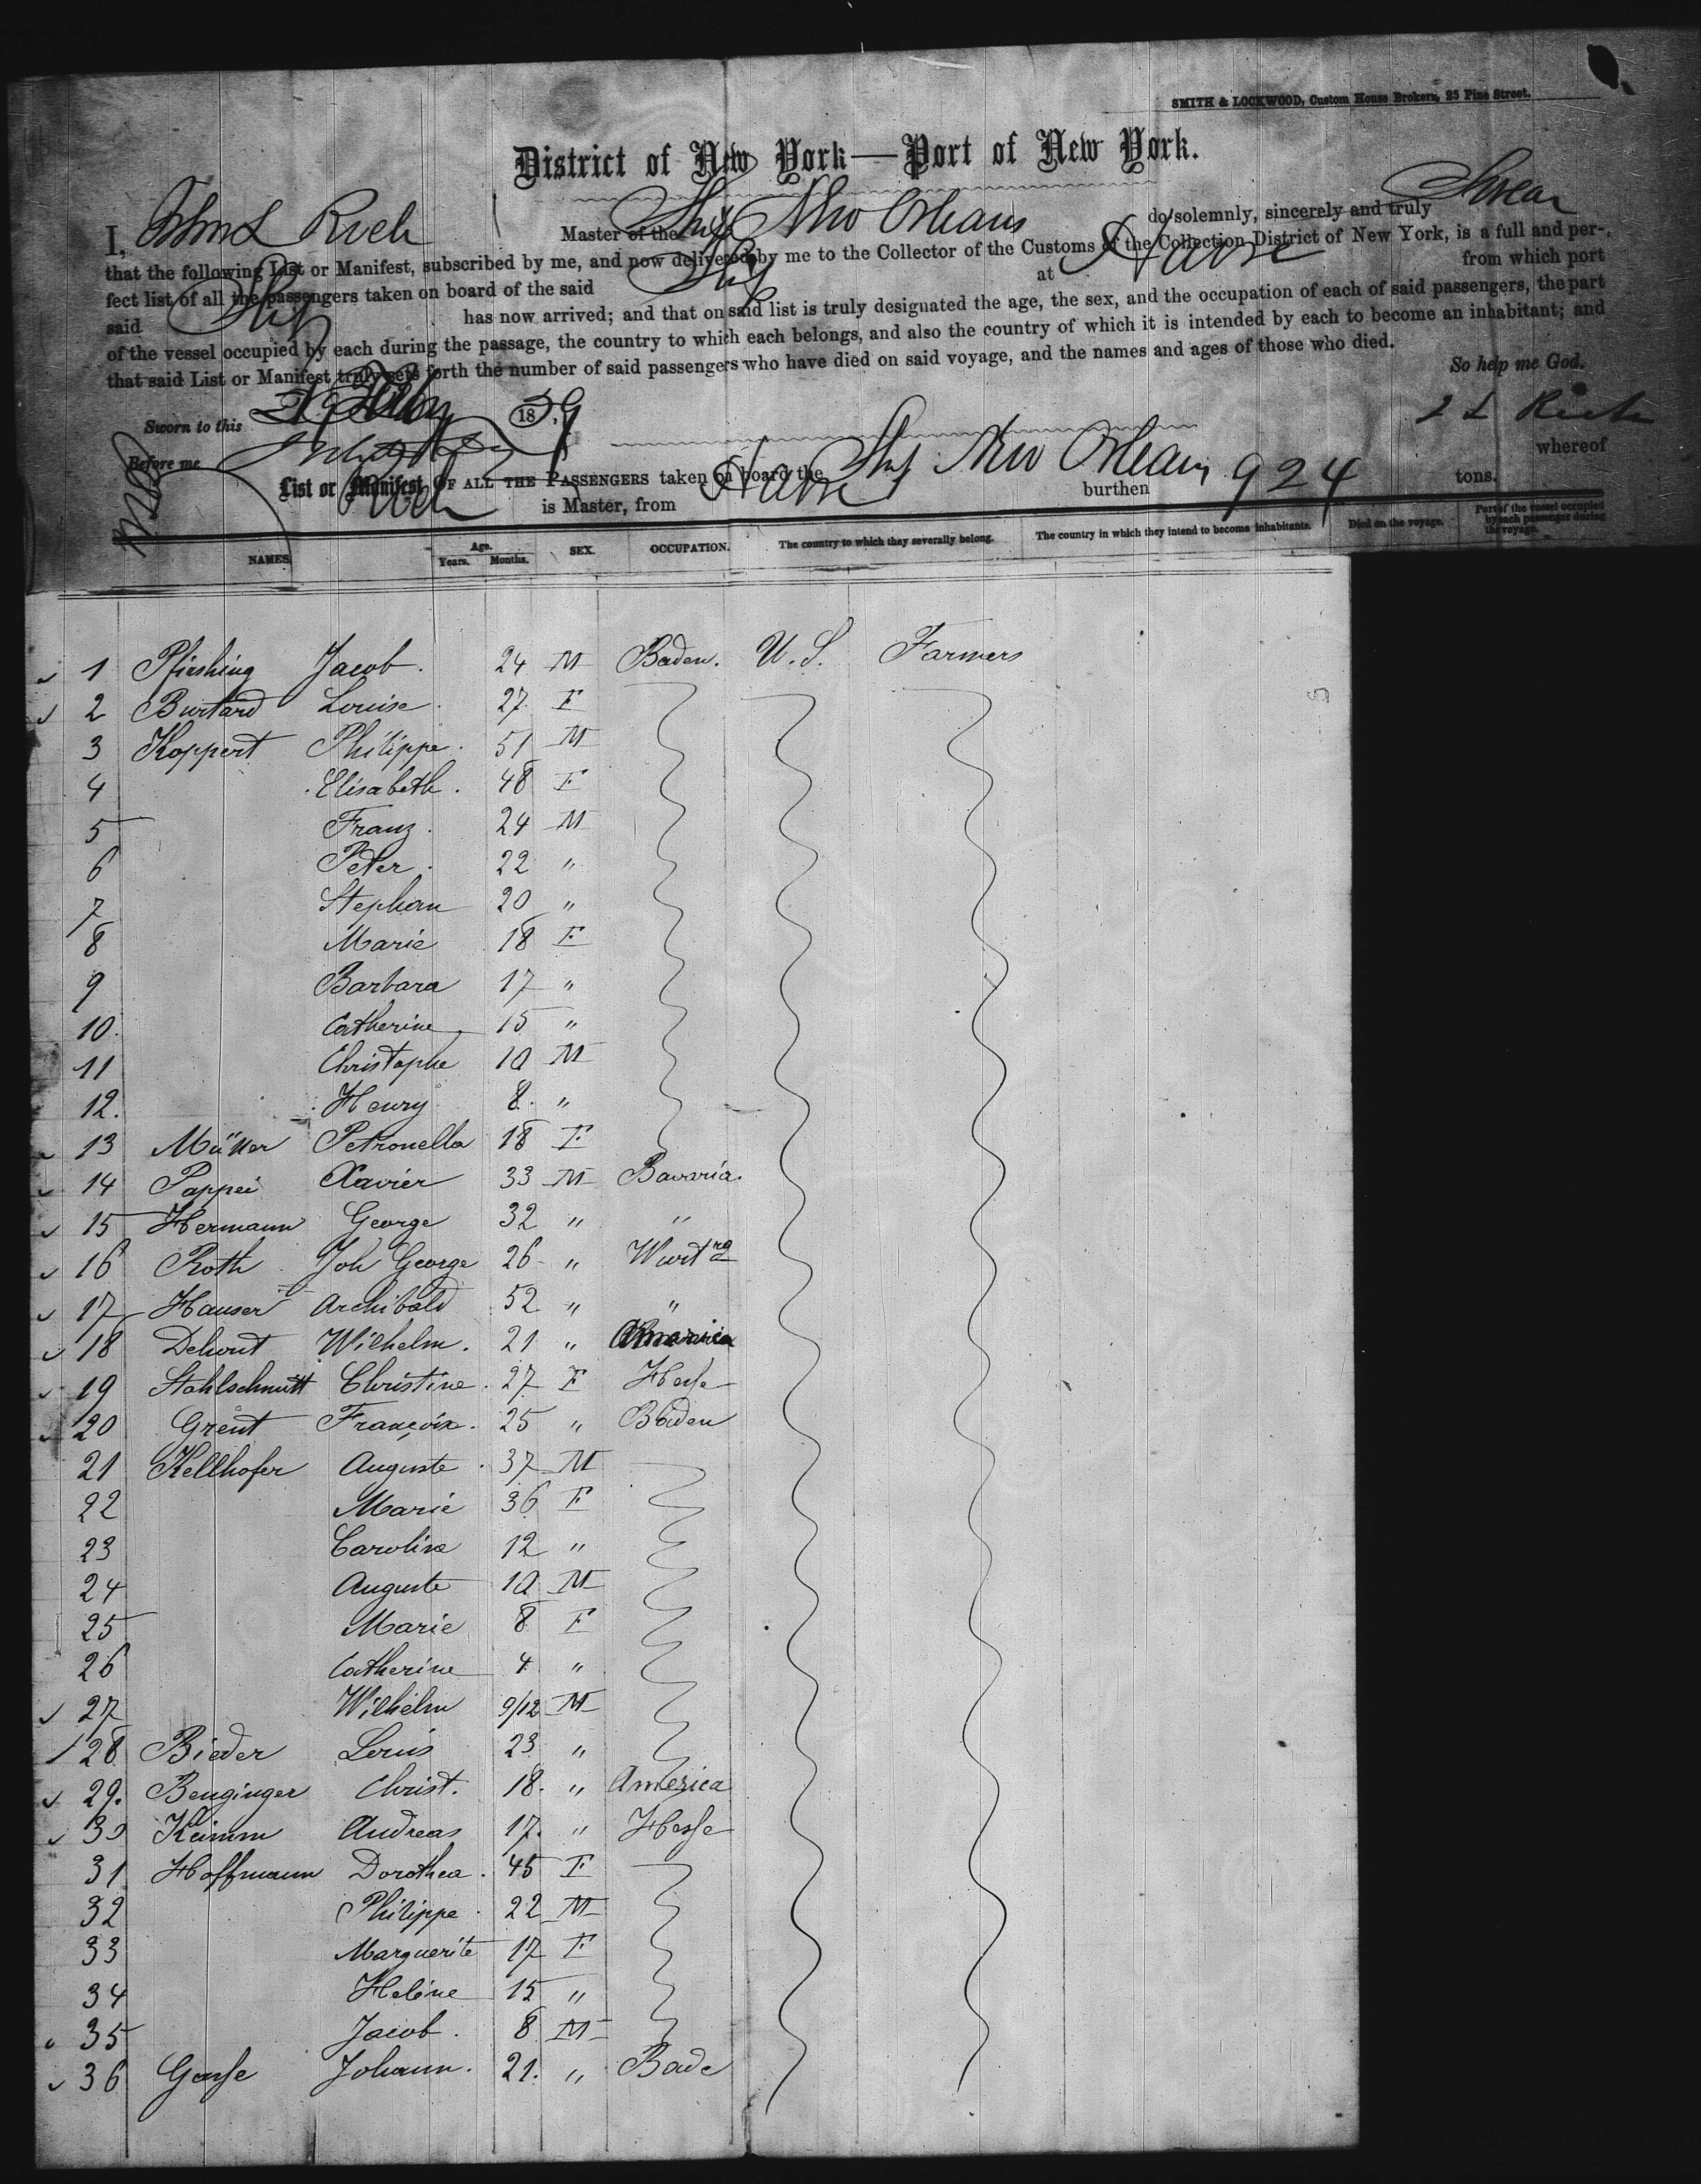 SMITH & LOCKWOOD, Custom House Brokers, 25 Pine Street.
District of New York—Port of New York.
I, Rich Master of the Ship New Orleans do solemnly, sincerely and truly Swear
that the following List or Manifest, subscribed by me, and now delivered by me to the Collector of the Customs of the Collection District of New York, is a full and per-
fect list of all the passengers taken on board of the said Ship at Havre from which port
said Ship has now arrived; and that on said list is truly designated the age, the sex, and the occupation of each of said passengers, the part
of the vessel occupied by each during the passage, the country to which each belongs, and also the country of which it is intended by each to become an inhabitant; and
that said List or Manifest truly sets forth the number of said passengers who have died on said voyage, and the names and ages of those who died.
So help me God.
Sworn to this 1859
Before me
List or Manifest OF ALL THE PASSENGERS taken on board the Ship New Orleans whereof
Rich is Master, from Havre burthen 924 tons.
NAMES. Age. Years. Months. SEX. OCCUPATION. The country to which they severally belong. The country in which they intend to become inhabitants. Died on the voyage. Part of the vessel occupied by each passenger during the voyage.
1 Pfirshing Jacob 24 M Baden. U.S. Farmers
2 Burtard Louise 27 F
3 Koppert Philippe 51 M
4 Elisabeth 48 F
5 Franz 24 M
6 Peter 22 "
7 Stephan 20 "
8 Marie 18 F
9 Barbara 17 "
10. Catherine 15 "
11 Christophe 10 M
12. Henry 8 "
13 Müller Petronella 18 F
14 Pappei Xavier 33 M Bavaria.
15 Hermann George 32 " "
16 Roth Joh George 26 " Wurtrg
17 Hauser Archibald 52 " "
18 Wilhelm. 21 "
19 Stahlschmitt Christine 27 F Hesse
20 Grent 25 " Baden
21 Kellhofer Auguste 37 M
22 Marie 36 F
23 Caroline 12 "
24 Auguste 10 M
25 Marie 8 F
26 Catherine 4 "
27 Wilhelm 9/12 M
28 Bieder Louis 23 "
29. Benginger Christ. 18. " America
30 Keimm Andreas 17. " Hesse
31 Hoffmann Dorothea 45 F
32 Philippe 22 M
33 Marguerite 17 F
34 Helène 15 "
35 Jacob 8 M
36 Gasse Johann. 21. " Bade